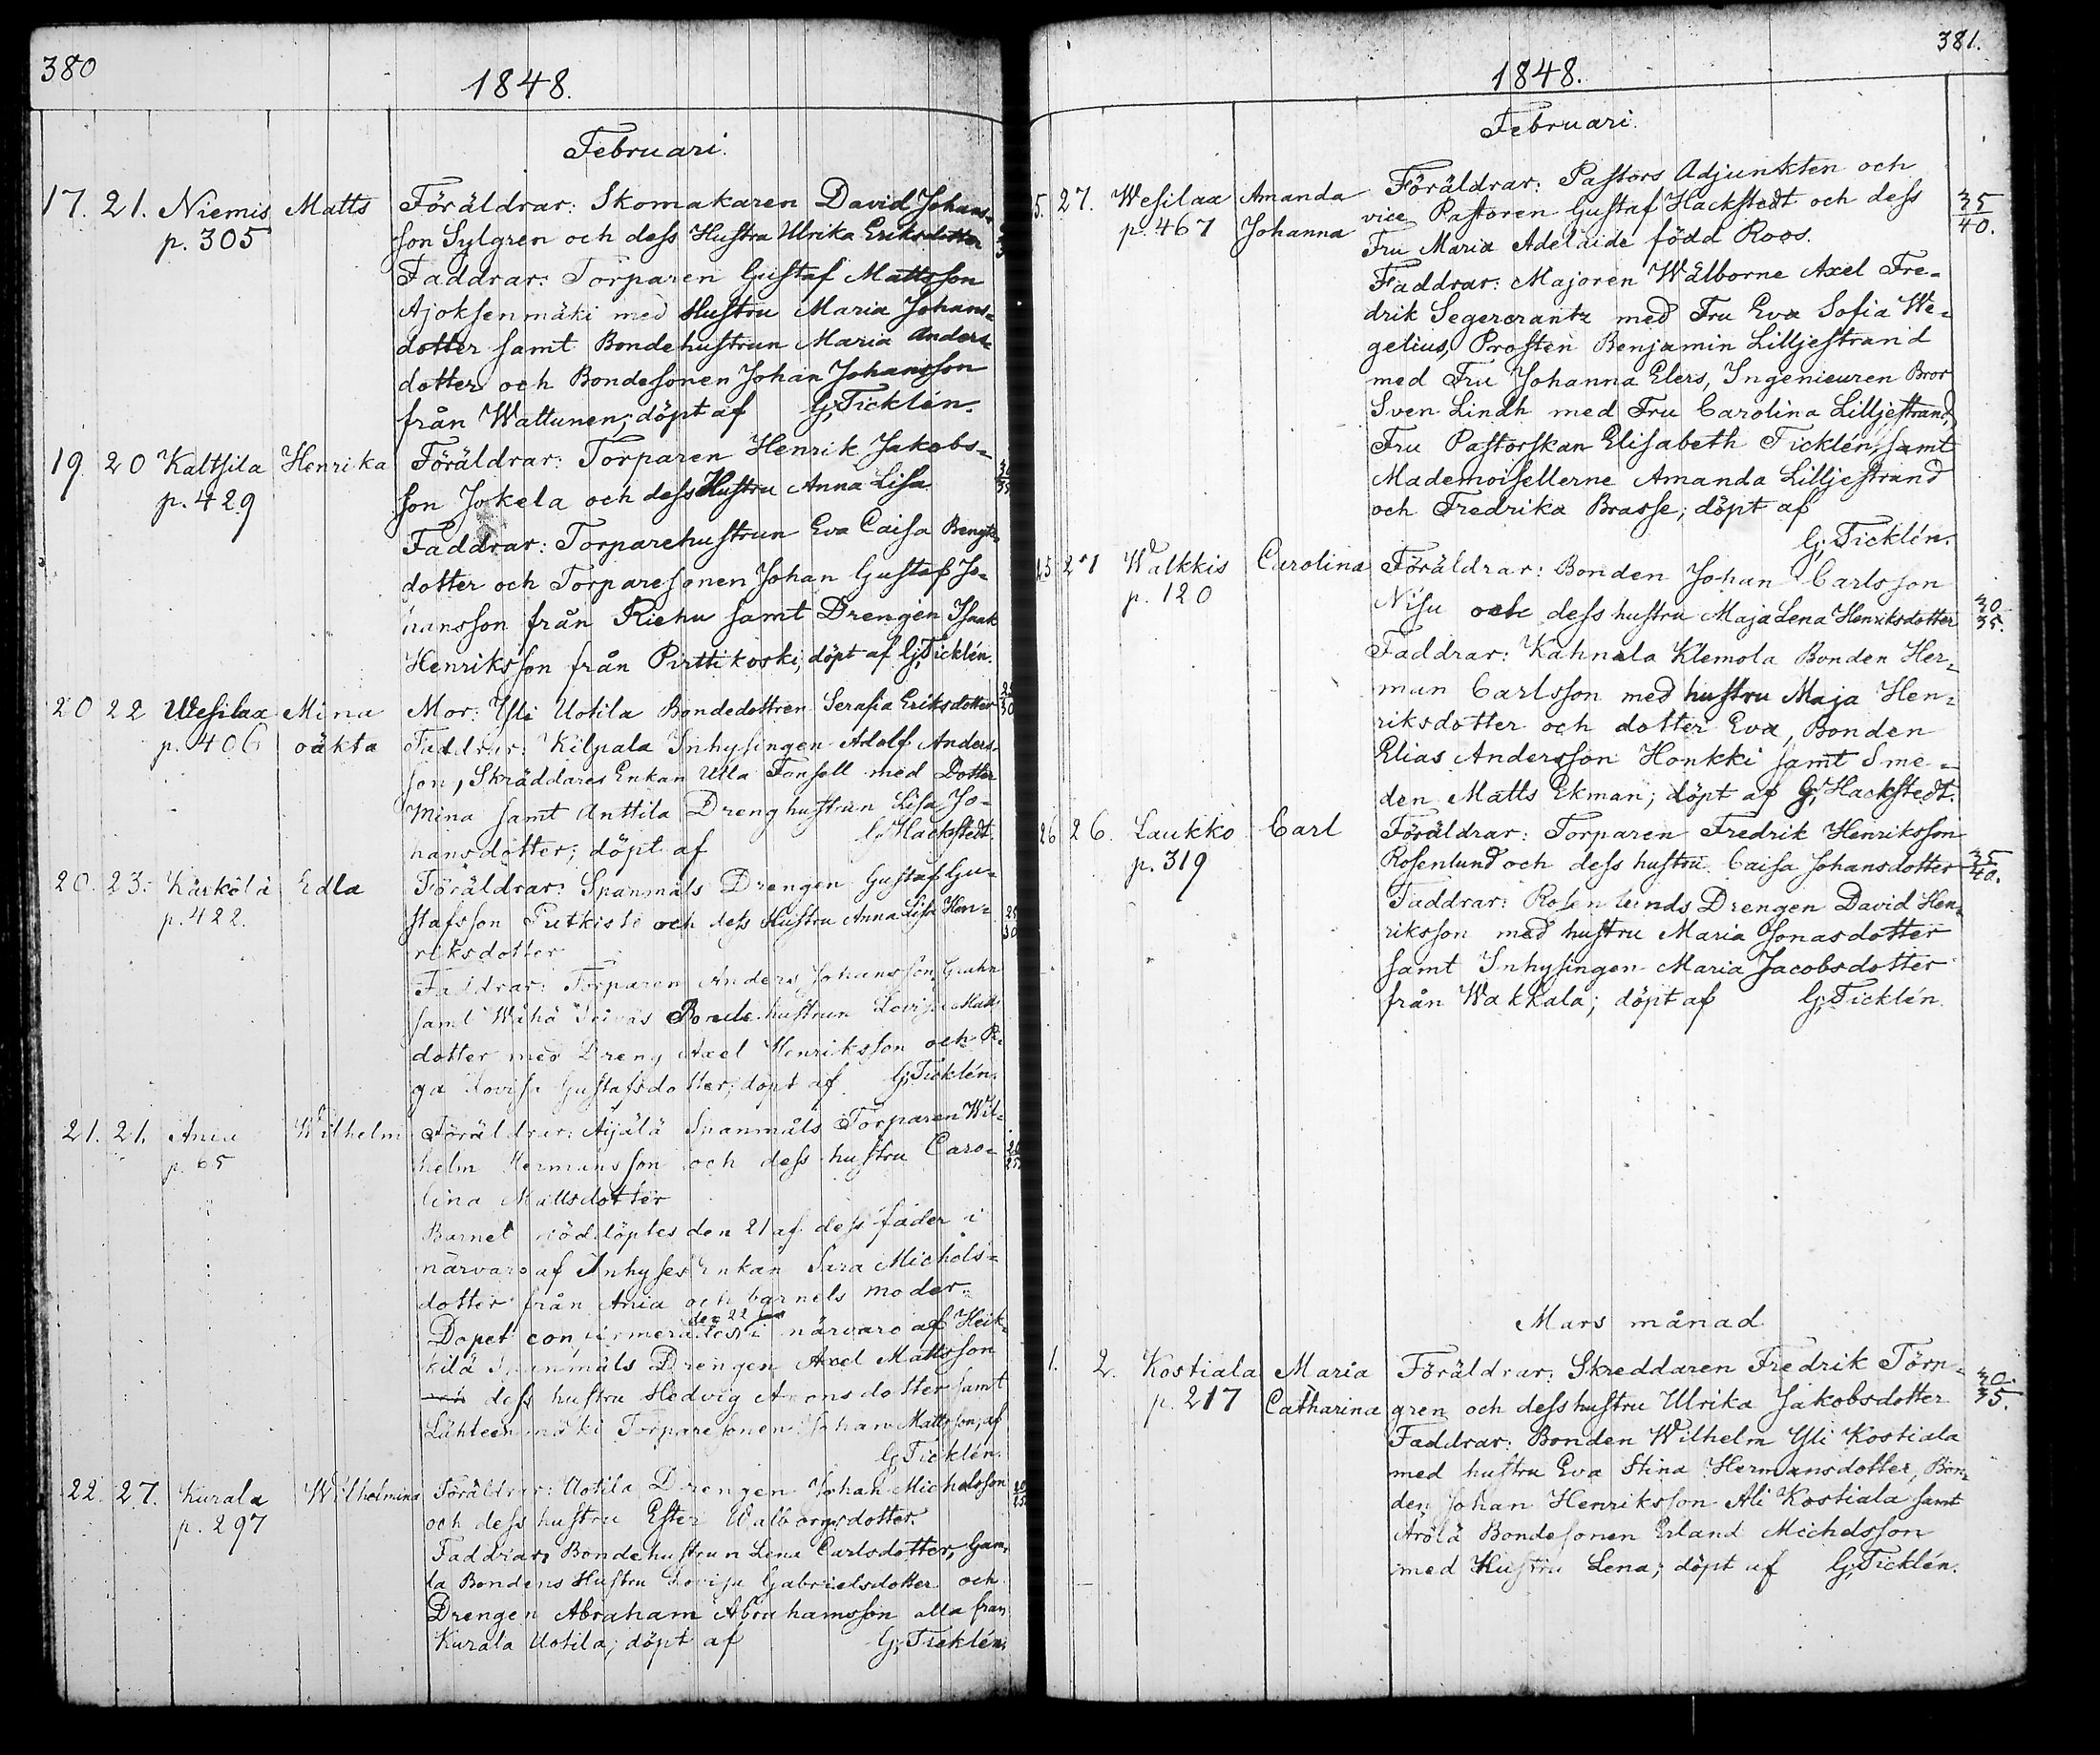 380
1848.
Februari.
17. 21. Niemis Matts Föräldrar: Skomakaren David Johans-
p. 305 son Sylgren och dess Hustru Ulrika Eriksdotter
Faddrar: Torparen Gustaf Mattsson
Ajoksenmäki med Hustru Maria Johans-
dotter samt Bondehustrun Maria Anders-
dotter och Bondesonen Johan Johansson
från Wattunen; döpt af G; Ticklén.
19. 20 Kaltsila Henrika Föräldrar: Torparen Henrik Jakobs-
p. 429 son Jokela och dess Hustru Anna Lisa
Faddrar: Torparehustrun Eva Caisa Bengts-
dotter och Torparesonen Johan Gustaf Jo-
hansson från Riehu samt Drengen Isaak
Henriksson från Pirttikoski; döpt af G; Ticklén.
20 22 Wesilax Mina Mor: Yli Uotila Bondedottren Serafia Eriksdotter
p. 406 oäkta Faddrar: Kilpala Inhysingen Adolf Anders-
son, Skräddares Enkan Ulla Fonsell med Dotter
Mina samt Anttila Drenghustrun Lisa Jo-
hansdotter; döpt af G; Hackstedt.
20. 23. Kärkölä Edla Föräldrar: Spanmåls Drengen Gustaf Gu-
p. 422. stafsson Putkisto och dess Hustru Anna Lisa Hen-
riksdotter
Faddrar: Torparen Anders Johansson
samt Bondehustrun Lovisa Matts
dotter med Dreng Axel Henriksson och Pi-
ga Lovisa Gustafsdotter; döpt af G; Ticklén.
21. 21. Ania Wilhelm Föräldrar: Äijälä Spanmåls Torparen Wil-
p. 65 helm Hermansson och dess hustru Caro-
lina Mattsdotter
Barnet nöddöptes den 21 af dess fader i
närvaro af Inhyses Enkan Sara Michels-
dotter från Ania och barnets moder.
den 22
Dopet confirmerades i närvaro af Heik-
kilä Spanmåls Drengen Axel Mattsson
dess hustru Hedvig Aronsdotter samt
Lähteenmäki Torparesonen Johan Mattsson; af
G; Ticklén.
22. 27. Kurala Wilhelmina Föräldrar: Uotila Drengen Johan Michelsson
p. 297 och dess hustru Ester Walborgsdotter.
Faddrar: Bondehustrun Lena Carlsdotter, Gam-
la Bondens Hustru Lovisa Gabrielsdotter och
Drengen Abraham Abrahamsson alla från
Kurala Uotila; döpt af G; Ticklén.
381.
1848.
Februari.
25. 27. Wesilax Amanda Föräldrar: Pastors Adjunkten och
p. 467 Johanna vice Pastoren Gustaf Hackstedt och dess 35
Fru Maria Adelaide född Roos. 40.
Faddrar: Majoren Wälborne Axel Fre-
drik Segercrantz med Fru Eva Sofia We-
gelius, Prosten Benjamin Lilljestrand
med Fru Johanna Elers, Ingenieuren Bror
Sven Lindh med Fru Carolina Lilljestrand,
Fru Pastorskan Elisabeth Ticklén, samt
Mademoisellerne Amanda Lilljestrand
och Fredrika Brasse; döpt af
G; Ticklén.
25 27 Walkkis Carolina Föräldrar: Bonden Johan Carlsson
p. 120 Nisu och dess hustru Maja Lena Henriksdotter 30
35.
Faddrar: Kahnala Klemola Bonden Her-
man Carlsson med hustru Maja Hen-
riksdotter och dotter Eva, Bonden
Elias Andersson Honkki samt Sme-
den Matts Ekman; döpt af G; Hackstedt.
26 26. Laukko Carl Föräldrar: Torparen Fredrik Henriksson
p. 319 Rosenlund och dess hustru Caisa Johansdotter 35
40.
Faddrar: Rosenlunds Drengen David Hen-
riksson med hustru Maria Jonasdotter
samt Inhysingen Maria Jacobsdotter
från Wakkala; döpt af G; Ticklén.
Mars månad
1. 2. Kostiala Maria Föräldrar: Skreddaren Fredrik Törn- 30.
p. 217 Catharina gren och dess hustru Ulrika Jakobsdotter 35.
Faddrar: Bonden Wilhelm Yli Kostiala
med hustru Eva Stina Hermansdotter, Bon-
den Johan Henriksson Ali Kostiala samt
Ärölä Bondesonen Erland Michelsson
med Hustru Lena; döpt af G; Ticklén.